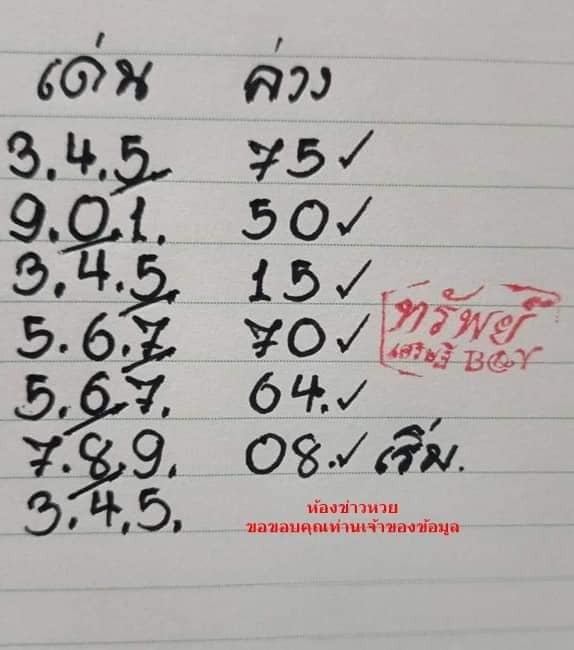 เด่น ล่าง
3.4.5. 75✓
9.0.1. 50✓
3.4.5. 15✓
5.6.7. 70✓
5.6.7. 64.✓
7.8.9. 08.✓ เริ่ม.
3.4.5.
ทรัพย์
เศรษฐี BOY
ห้องข่าวหวย
ขอขอบคุณท่านเจ้าของข้อมูล